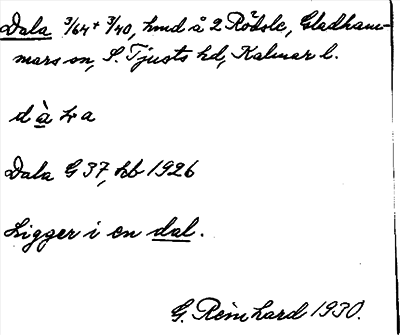 Dala 3/64 + 3/40, hmd å 2 Rödsle, Gladham-
mars sn, S. Tjusts hd, Kalmar l.
Dala G 37, hb 1926
Ligger i en dal.
G. Reinhard 1930.